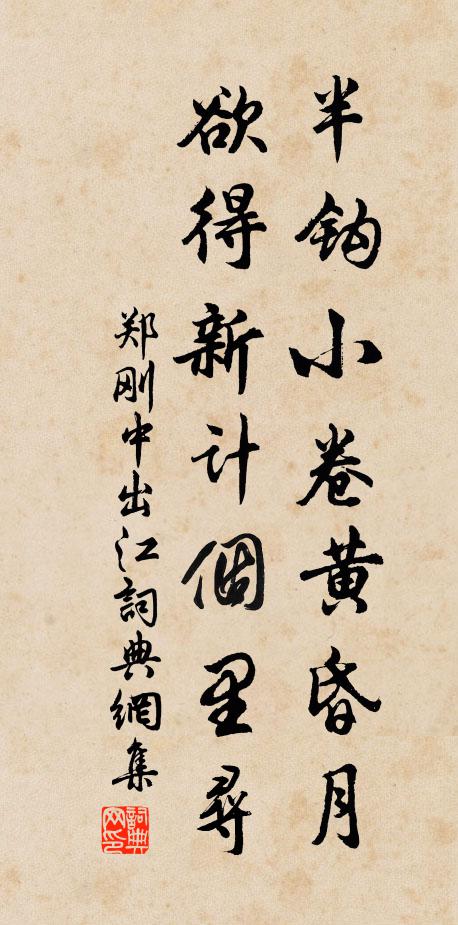 半鈎小卷黃昏月
欲得新计個里尋
郑刚中出江詞典網集
詞典网印